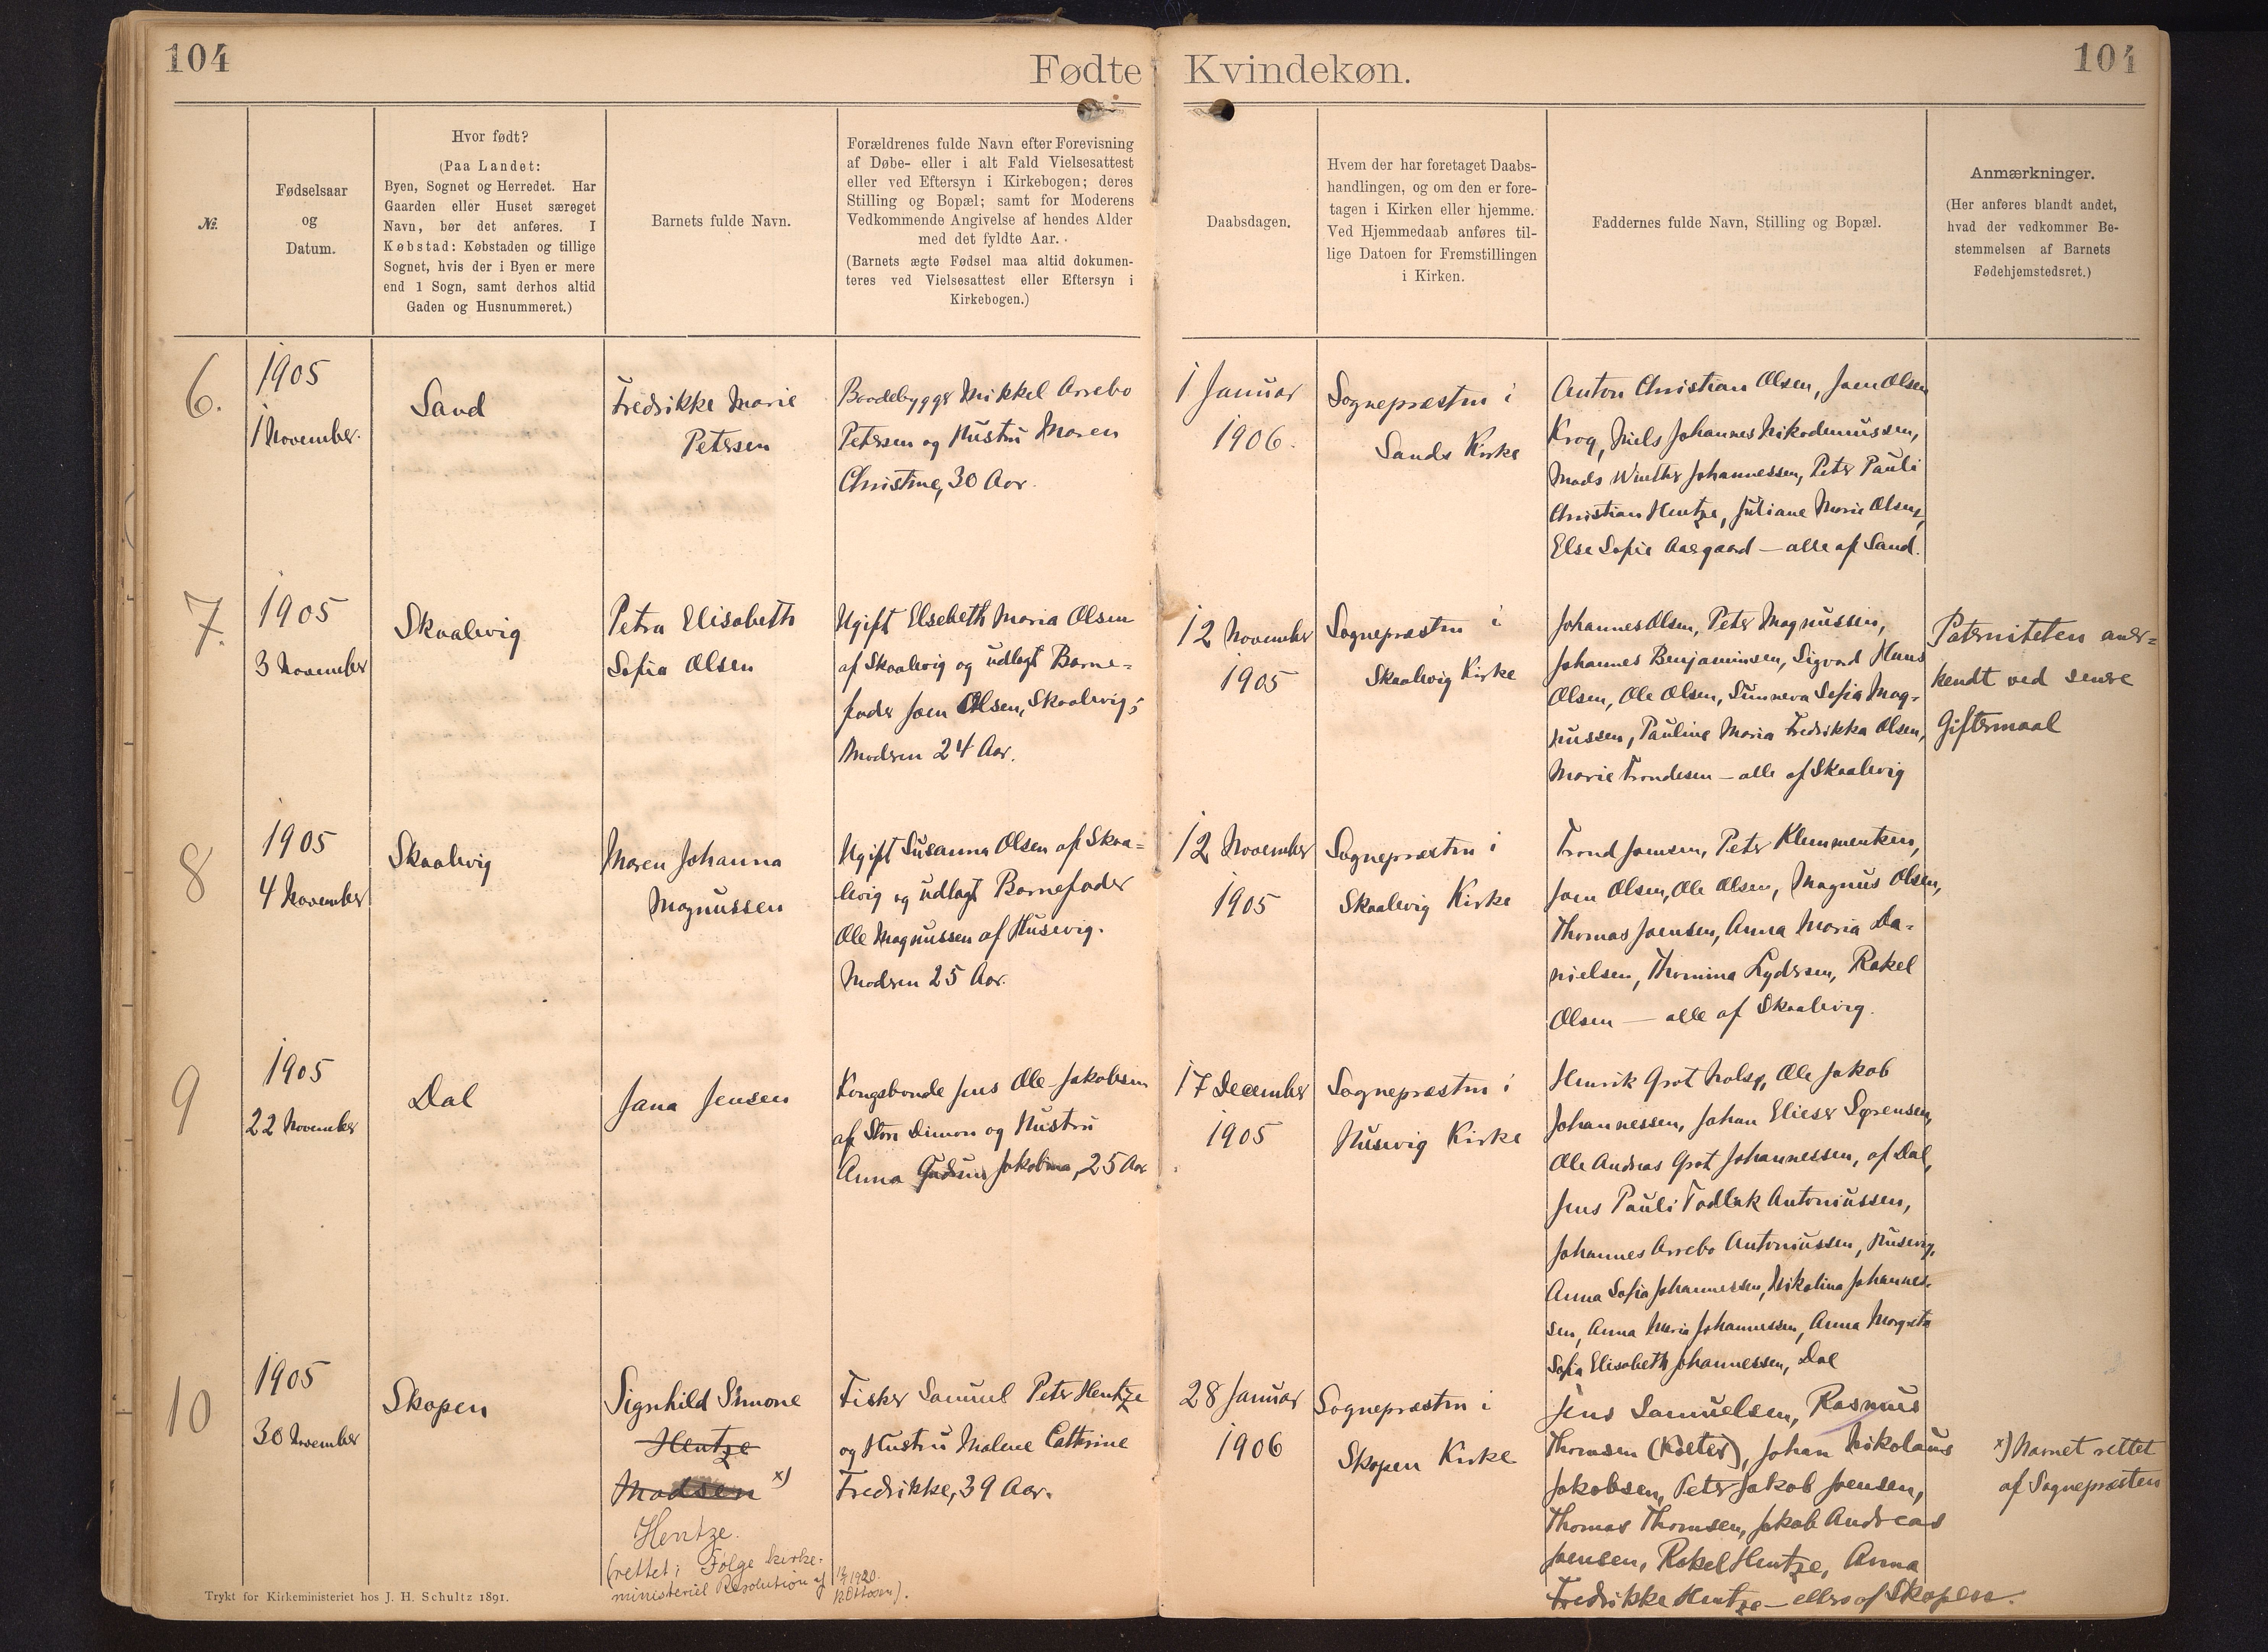 104
Fødte Kvindekøn.
104
№.
Fødselsaar
og
Datum.
Hvor født?
(Paa Landet:
Byen, Sognet og Herredet. Har
Gaarden eller Huset særeget
Navn, bør det anføres. I
Købstad: Købstaden og tillige
Sognet, hvis der i Byen er mere
end 1 Sogn, samt derhos altid
Gaden og Husnummeret.)
Barnets fulde Navn.
Forældrenes fulde Navn efter Forevisning
af Døbe- eller i alt Fald Vielsesattest
eller ved Eftersyn i Kirkebogen; deres
Stilling og Bopæl; samt for Moderens
Vedkommende Angivelse af hendes Alder
med det fyldte Aar.
(Barnets ægte Fødsel maa altid dokumen-
teres ved Vielsesattest eller Eftersyn i
Kirkebogen.)
Daabsdagen.
Hvem der har foretaget Daabs-
handlingen, og om den er fore-
tagen i Kirken eller hjemme.
Ved Hjemmedaab anføres til-
lige Datoen for Fremstillingen
i Kirken.
Faddernes fulde Navn, Stilling og Bopæl.
Anmærkninger.
(Her anføres blandt andet,
hvad der vedkommer Be-
stemmelsen af Barnets
Fødehjemstedsret.)
6.
1905
1 November.
Sand
Fredrikke Marie
Petersen
Baadebygger Mikkel Arrebo
Petersen og Hustru Maren
Christine, 30 Aar.
1 Januar
1906.
Sognepræsten i
Sands Kirke
Anton Christian Olsen, Joen Olsen
Krog, Niels Johannes Nikodemussen,
Mads Winther Johannessen, Peter Pauli
Christian Hentze, Juliane Marie Olsen,
Else Sofie Aaegaard — alle af Sand.
7.
1905
3 November
Skaalvig
Petra Elisabeth
Sofia Olsen
Ugift Elsebeth Maria Olsen
af Skaalvig og udlagt Barne-
fader Joen Olsen, Skaalvig;
Moderen 24 Aar.
12 November
1905
Sognepræsten i
Skaalvig Kirke
Johannes Olsen, Peter Magnussen,
Johannes Benjaminsen, Sigvard Hans
Olsen, Ole Olsen, Sunneva Sofia Mag-
nussen, Pauline Maria Fredrikka Olsen,
Marie Trondesen — alle af Skaalvig
Paterniteten aner-
kendt ved senere
Giftermaal
8
1905
4 November
Skaalvig
Maren Johanna
Magnussen
Ugift Susanna Olsen af Skaa-
lvig og udlagt Barnefader
Ole Magnussen af Husevig.
Moderen 25 Aar.
12 November
1905
Sognepræsten i
Skaalvig Kirke
Trond Joensen, Peter Klemmentsen,
Joen Olsen, Ole Olsen, Magnus Olsen,
Thomas Joensen, Anna Maria Da-
nielsen, Thomina Lydersen, Rakel
Olsen — alle af Skaalvig.
9
1905
22 November
Dal
Jana Jensen
Kongsbonde Jens Ole Jakobsen
af Store Dimon og Hustru
Anna Gudrun Jakobina, 25 Aar
17 December
1905
Sognepræsten i
Husevig Kirke
Henrik Grot Ole Jakob
Johannessen, Johan Elieser Sørensen,
Ole Andreas Grot Johannessen, af Dal,
Jens Pauli Antoniussen,
Johannes Arrebo Antoniussen, Husevig,
Anna Sofia Johannessen, Nikolina Johannes-
sen, Anna Maria Johannessen, Anna Margreta
Sofia Elisabeth Johannessen, Dal
10
1905
30 November
Skopen
Signhild Simone
Hentze
Madsen x)
Hentze.
(rettet i Følge kirke-
ministeriel Resolution af
1920.
Fisker Samuel Peter Hentze
og Hustru Malene Cathrine
Fredrikke, 39 Aar.
28 Januar
1906
Sognepræsten i
Skopen Kirke
Jens Samuelsen, Rasmus
Thomsen (Kolter), Johan Nikolaus
Jakobsen, Peter Jakob Joensen,
Thomas Thomsen, Jakob Andreas
Joensen, Rakel Hentze, Anna
Fredrikke Hentze — alle af Skopen.
x) Navnet rettet
af Sognepræsten
Trykt for Kirkeministeriet hos J. H. Schultz 1891.